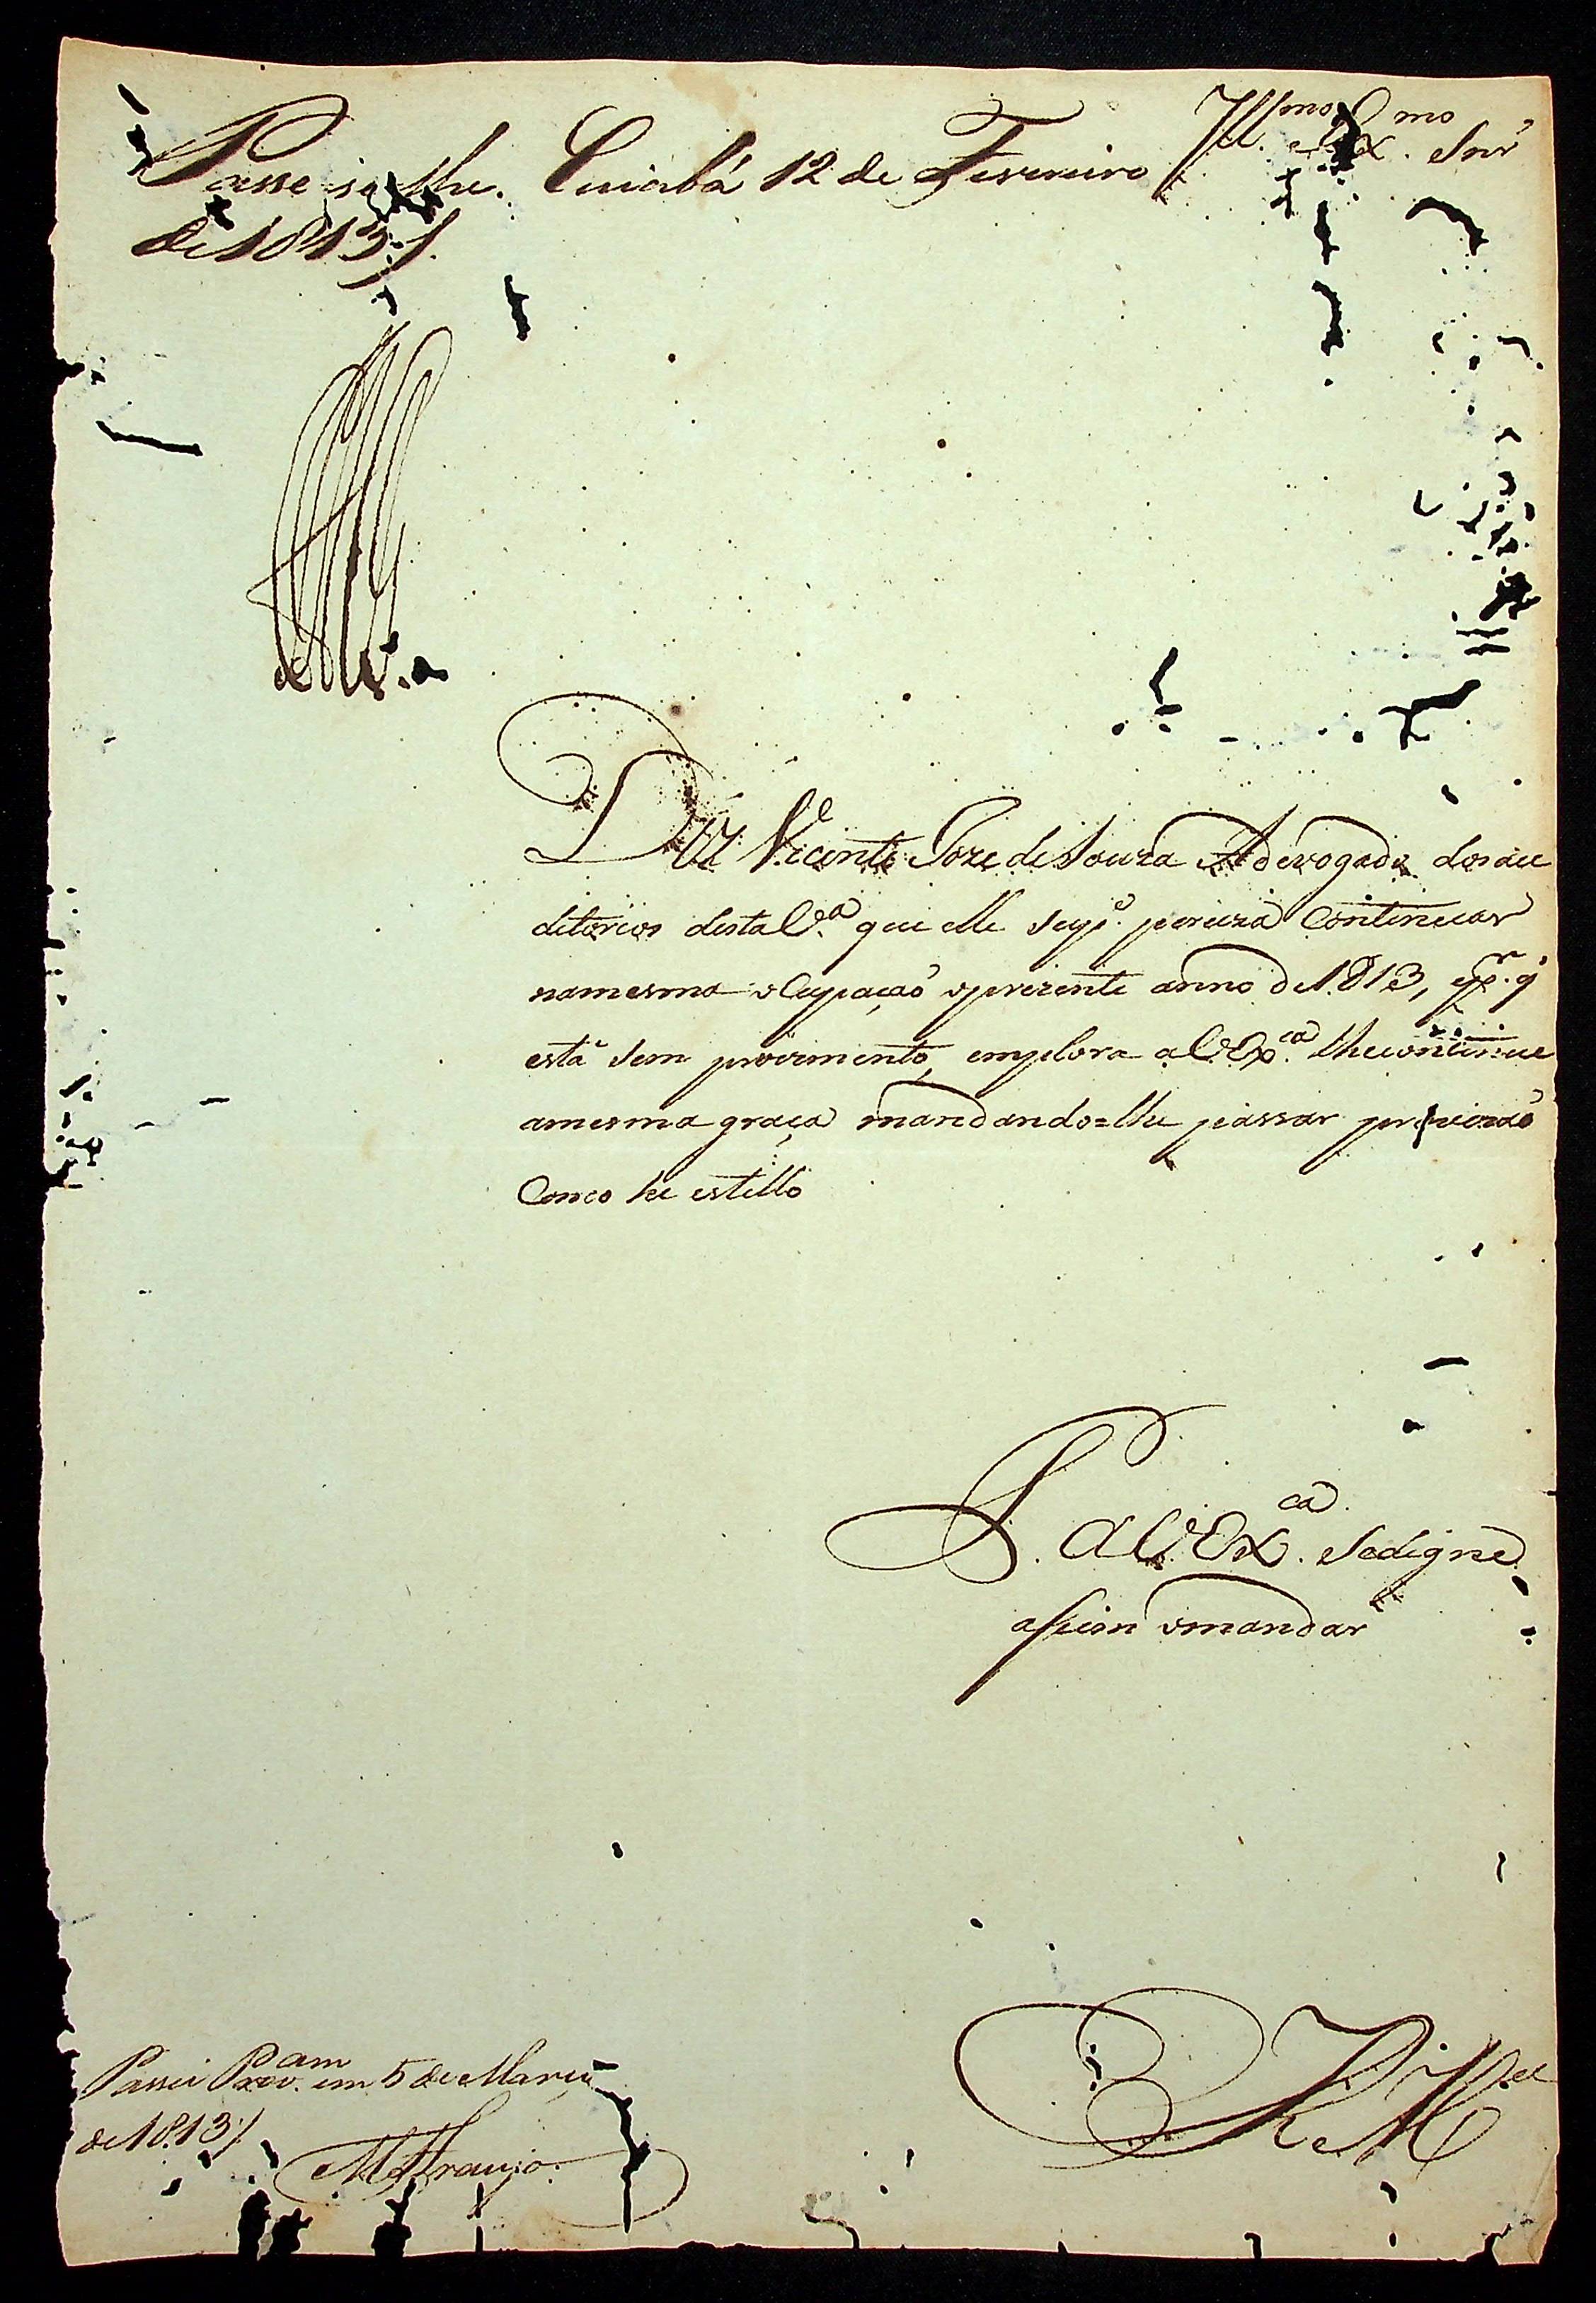 Passe-se-lhe. Cuiabá 12 de Fevereiro
de 1813./.
Ill.mo e Ex.mo Snr
Diz Vicente Joze de Souza Adevogado dos au
ditorios desta V.a que elle sup.e perciza Continuar
na mesma oCupaçaõ o prezente anno de 1813, e p.r q'
está sem provimento, emplora a V.Ex.ca lhe continue
a mesma graça mandando=lhe passar provizaõ
Como he estillo
P. a V.Ex.ca se digne
assim o mandar
R. M.ce
Passei Prov.am em 5 de Março
de 1813/
M Araujo